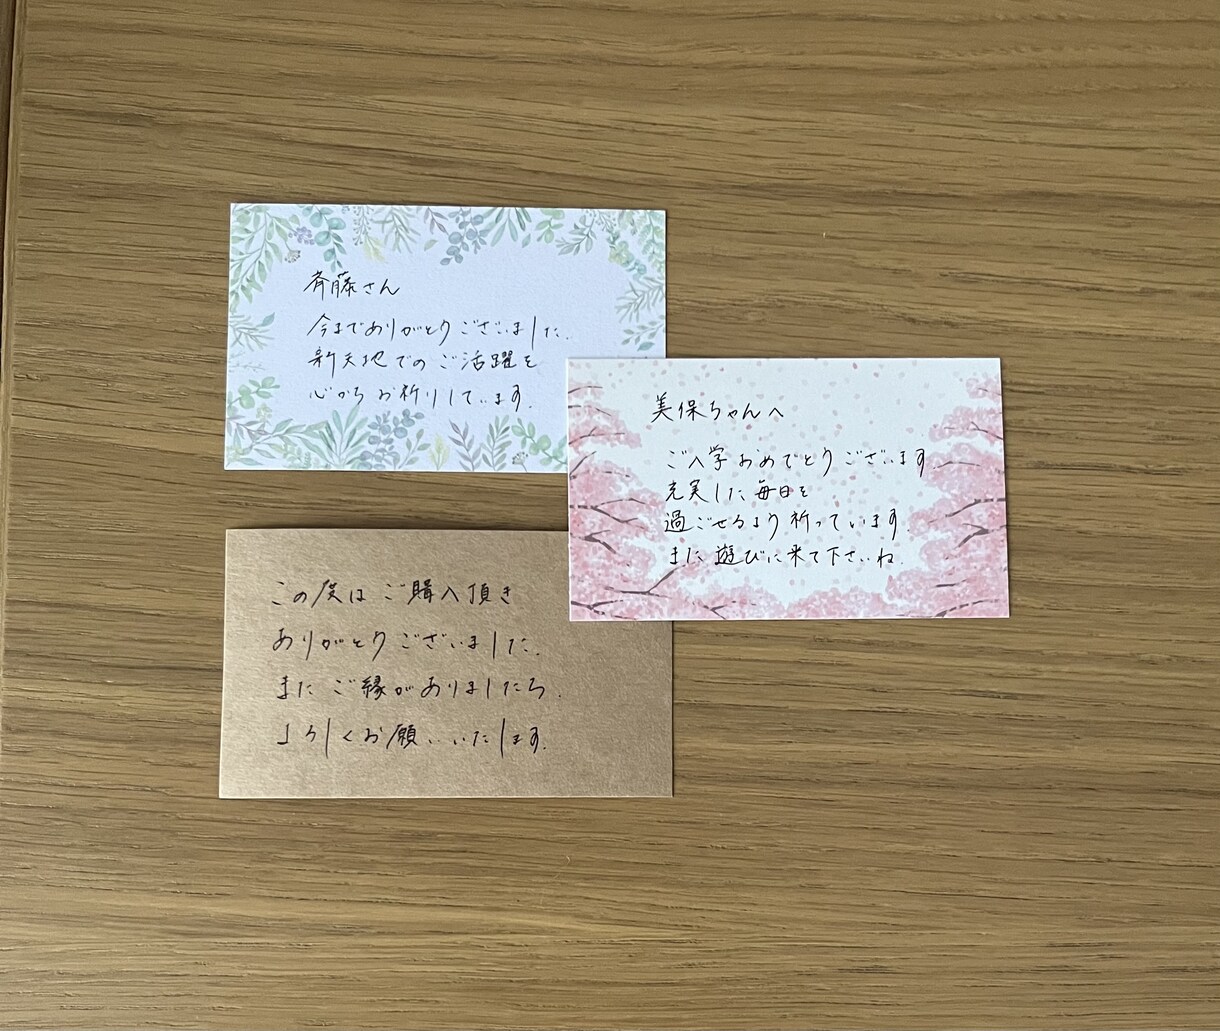 斉藤さん
今までありがとうございました.
新天地でのご活躍を
心からお祈りしています.
美保ちゃんへ
ご入学おめでとうございます.
充実した毎日を
過ごせるよう祈っています
また遊びに来て下さいね.
この度はご購入頂き
ありがとうございました.
またご縁がありましたら.
よろしくお願いいたします.